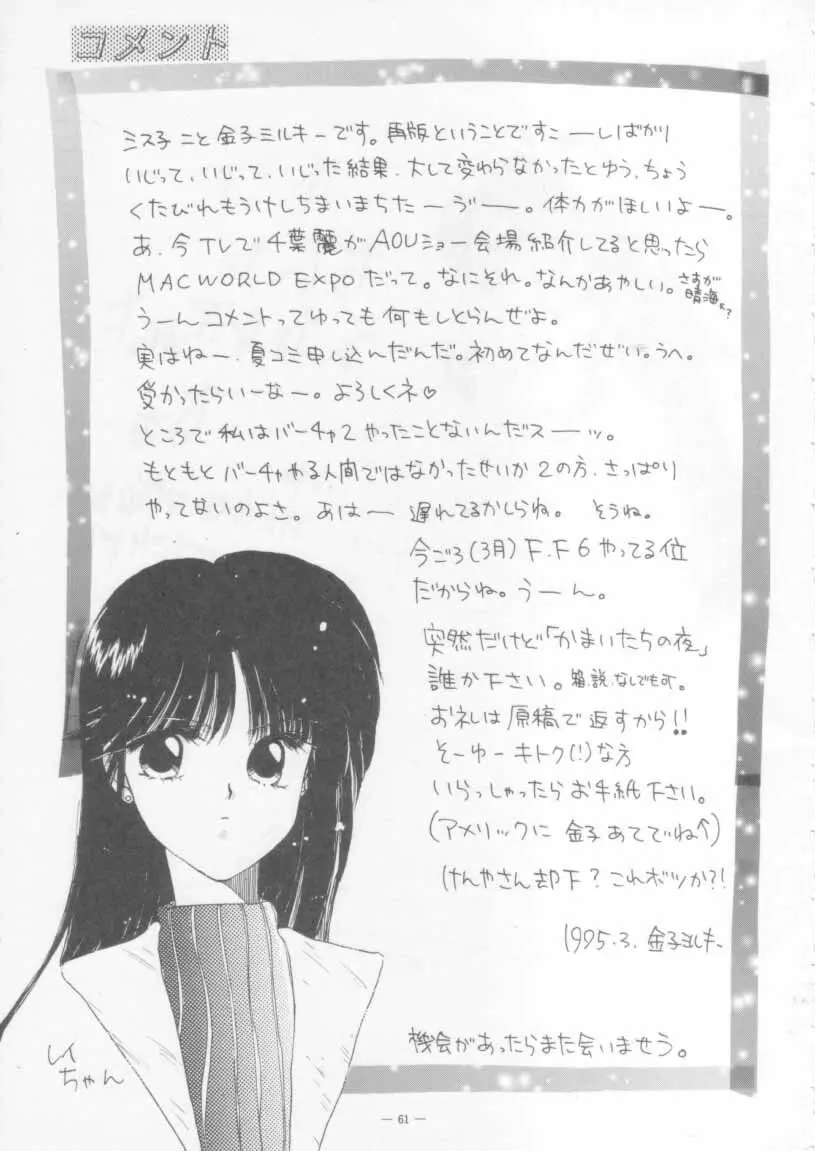 コメント
ミス子こと金子ミルキーです。再版ということですこーしばかり
いじって、いじって、いじった結果、大して変わらなかったとゆう、ちょう
くたびれもうけしちまいまちたーゔー。体力がほしいよー。
あ、今TVで千葉麗がAOUショー会場紹介してると思ったら
MACWORLD EXPOだって。なにそれ。なんかあやしい。さすが晴海
うーんコメントってゆっても何もしとらんぜよ。
実はねー、夏コミ申し込んだんだ。初めてなんだぜい。うへ。
受かったらいーなー。よろしくネ♡
ところで私はバーチャ2やったことないんだスーッ。
もともとバーチャやる人間ではなかったせいか2の方、さっぱり
やってないのよさ。あはー 遅れてるかしらね。 そうね。
今ごろ(3月)F.F6やってる位
だからね。うーん。
突然だけど「かまいたちの夜」
誰か下さい。箱、説、なしでも可。
お礼は原稿で返すから!!
そーゆーキトク(!)な方
いらっしゃったらお手紙下さい。
(アメリックに 金子あてでね↑)
けんやさん却下?これボツか?!
1995.3. 金子ミルキー
レイ
ちゃん
機会があったらまた会いませう。
— 61 —